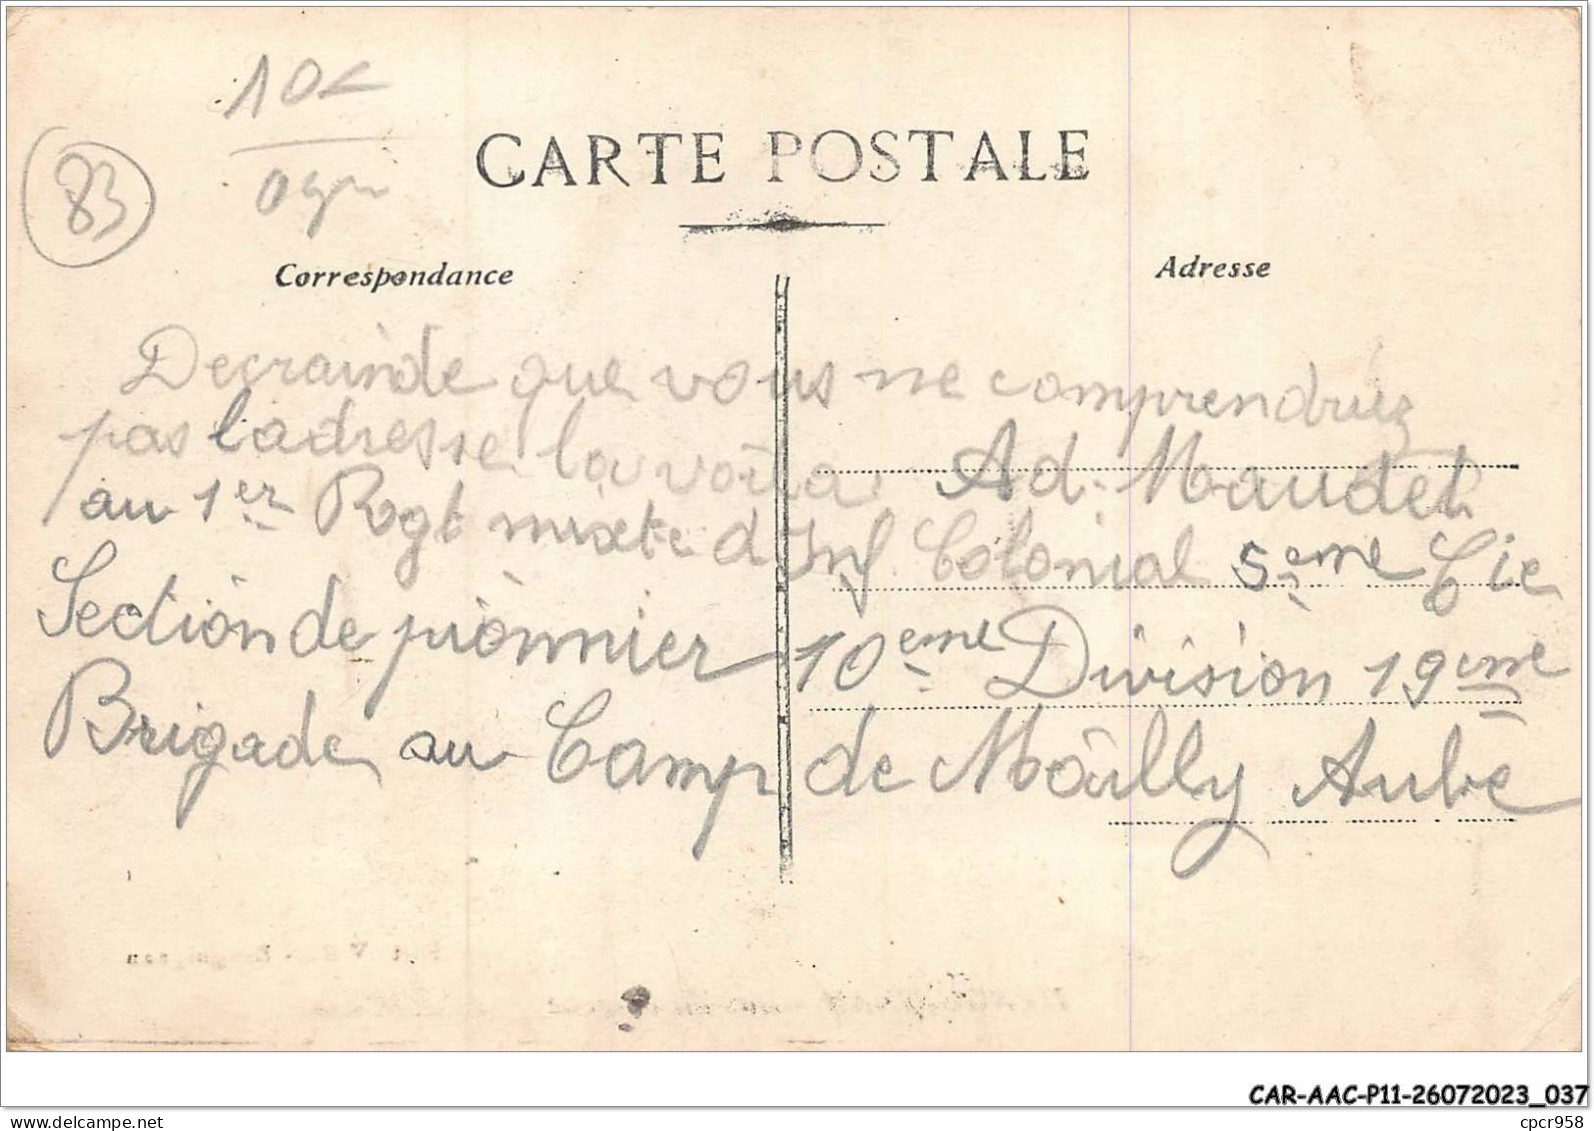 10€
83
CARTE POSTALE
Correspondance
Adresse
Decrainde que vous ne comprendriez
pas l'adresse la voila Ad. Maudet
au 1er Rgt mixte d'Inf Colonial 5eme Cie
Section de pionnier 10eme Division 19eme
Brigade au Camp de Mailly Aube
CAR-AAC-P11-26072023_037
delcampe.net
cpcr958